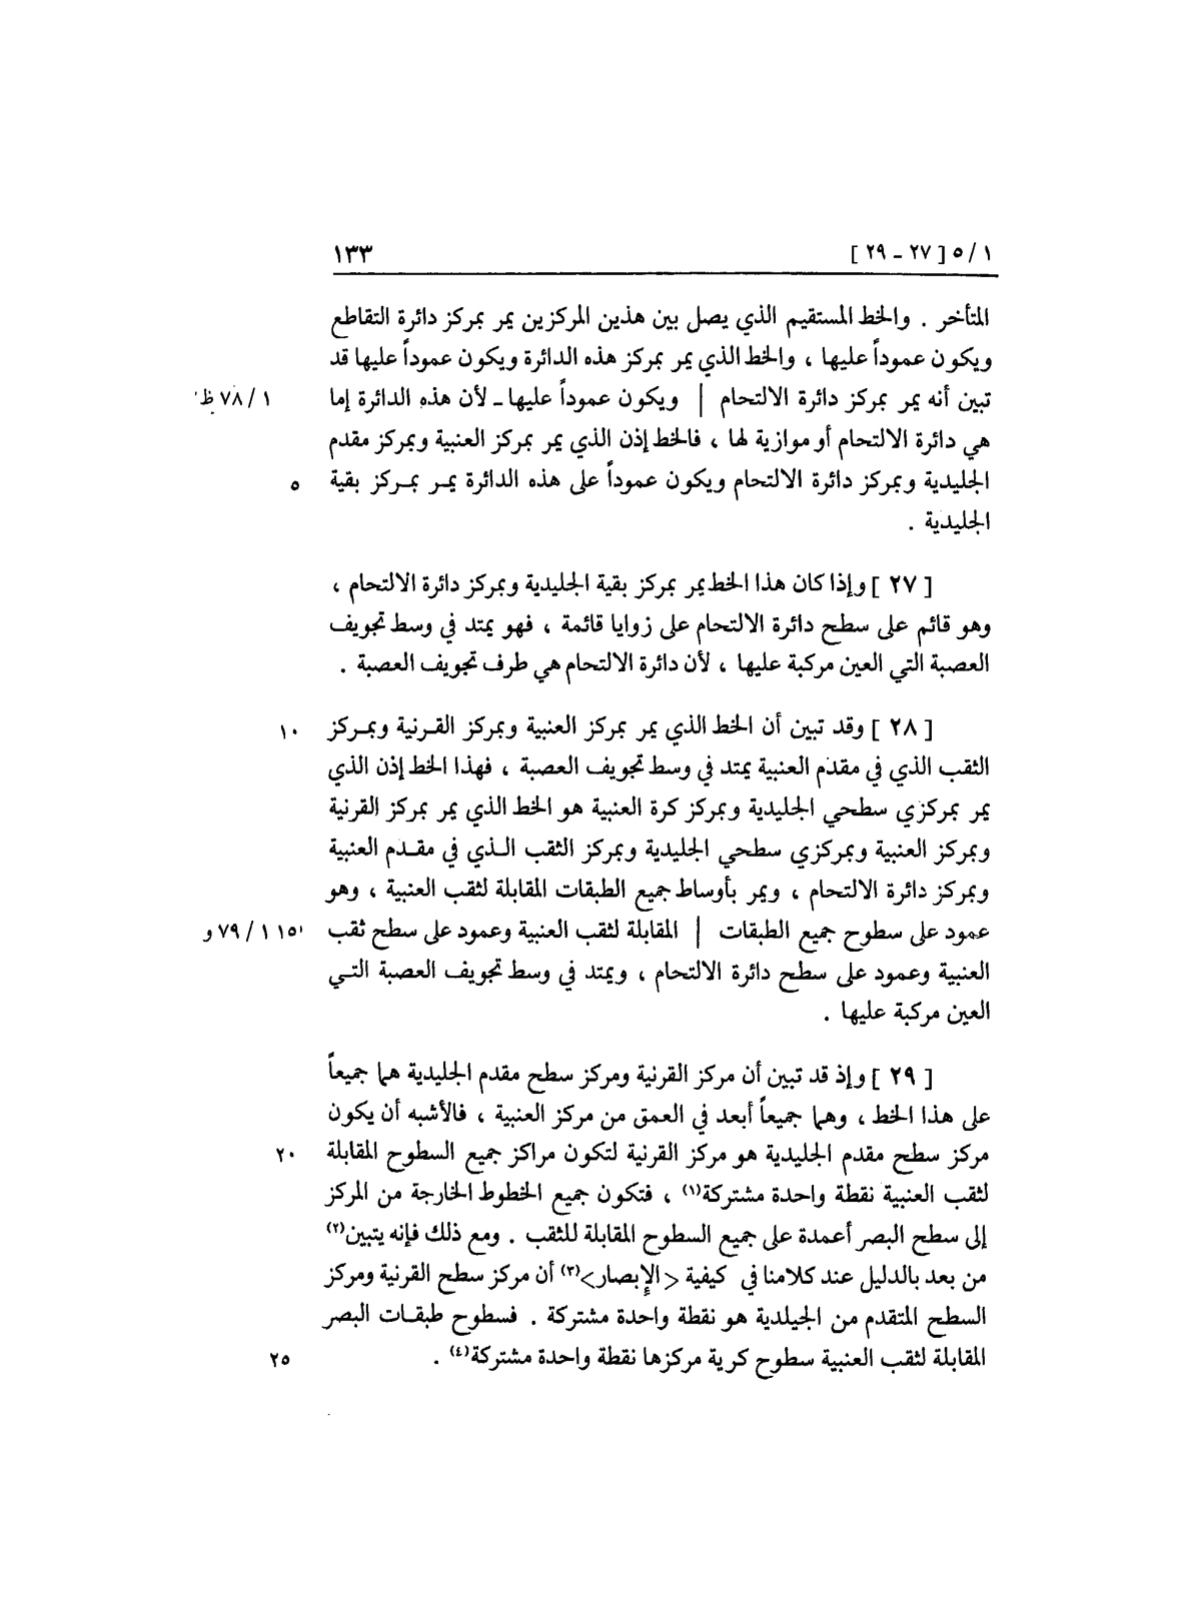 ١ / ٥ [ ٢٧ ـ ٢٩ ] ١٣٣
المتأخر . والخط المستقيم الذي يصل بين هذين المركزين يمر بمركز دائرة التقاطع
ويكون عموداً عليها ، والخط الذي يمر بمركز هذه الدائرة ويكون عموداً عليها قد
تبين أنه يمر بمركز دائرة الالتحام | ويكون عموداً عليها ـ لأن هذه الدائرة إما ١ / ٧٨ ظ
هي دائرة الالتحام أو موازية لها ، فالخط إذن الذي يمر بمركز العنبية وبمركز مقدم
الجليدية وبمركز دائرة الالتحام ويكون عموداً على هذه الدائرة يمـر بمـركز بقية ٥
الجليدية .
[ ٢٧ ] وإذا كان هذا الخط يمر بمركز بقية الجليدية وبمركز دائرة الالتحام ،
وهو قائم على سطح دائرة الالتحام على زوايا قائمة ، فهو يمتد في وسط تجويف
العصبة التي العين مركبة عليها ، لأن دائرة الالتحام هي طرف تجويف العصبة .
[ ٢٨ ] وقد تبين أن الخط الذي يمر بمركز العنبية وبمركز القـرنية وبمـركز ١٠
الثقب الذي في مقدم العنبية يمتد في وسط تجويف العصبة ، فهذا الخط إذن الذي
يمر بمركزي سطحي الجليدية وبمركز كرة العنبية هو الخط الذي يمر بمركز القرنية
وبمركز العنبية وبمركزي سطحي الجليدية وبمركز الثقب الـذي في مقـدم العنبية
وبمركز دائرة الالتحام ، ويمر بأوساط جميع الطبقات المقابلة لثقب العنبية ، وهو
عمود على سطوح جميع الطبقات | المقابلة لثقب العنبية وعمود على سطح ثقب ١٥ ١ / ٧٩ و
العنبية وعمود على سطح دائرة الالتحام ، ويمتد في وسط تجويف العصبة التـي
العين مركبة عليها .
[ ٢٩ ] وإذ قد تبين أن مركز القرنية ومركز سطح مقدم الجليدية هما جميعاً
على هذا الخط ، وهما جميعاً أبعد في العمق من مركز العنبية ، فالأشبه أن يكون
مركز سطح مقدم الجليدية هو مركز القرنية لتكون مراكز جميع السطوح المقابلة ٢٠
لثقب العنبية نقطة واحدة مشتركة(١) ، فتكون جميع الخطوط الخارجة من المركز
إلى سطح البصر أعمدة على جميع السطوح المقابلة للثقب . ومع ذلك فإنه يتبين(٢)
من بعد بالدليل عند كلامنا في كيفية <الإبصار>(٣) أن مركز سطح القرنية ومركز
السطح المتقدم من الجيلدية هو نقطة واحدة مشتركة . فسطوح طبقـات البصر
المقابلة لثقب العنبية سطوح كرية مركزها نقطة واحدة مشتركة(٤) . ٢٥